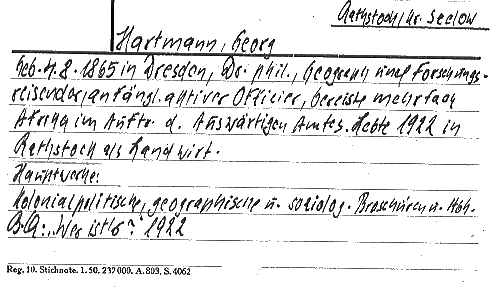 Rathstock, Kr. Seelow
Hartmann, Georg
Geb. 4.8.1865 in Dresden, Dr. phil., Geograph und Forschungs-
reisender, anfängl. aktiver Officier, bereiste mehrfach
Afrika im Auftr. d. Auswärtigen Amtes. Lebte 1922 in
Rathstock als Landwirt.
Hauptwerke:
Kolonialpolitische, geographische u. soziolog. Broschüren u.
B.Q.: „Wer ist's?" 1922
Reg. 10. Stichnote. 1. 50. 237000. A. 803. S. 4062